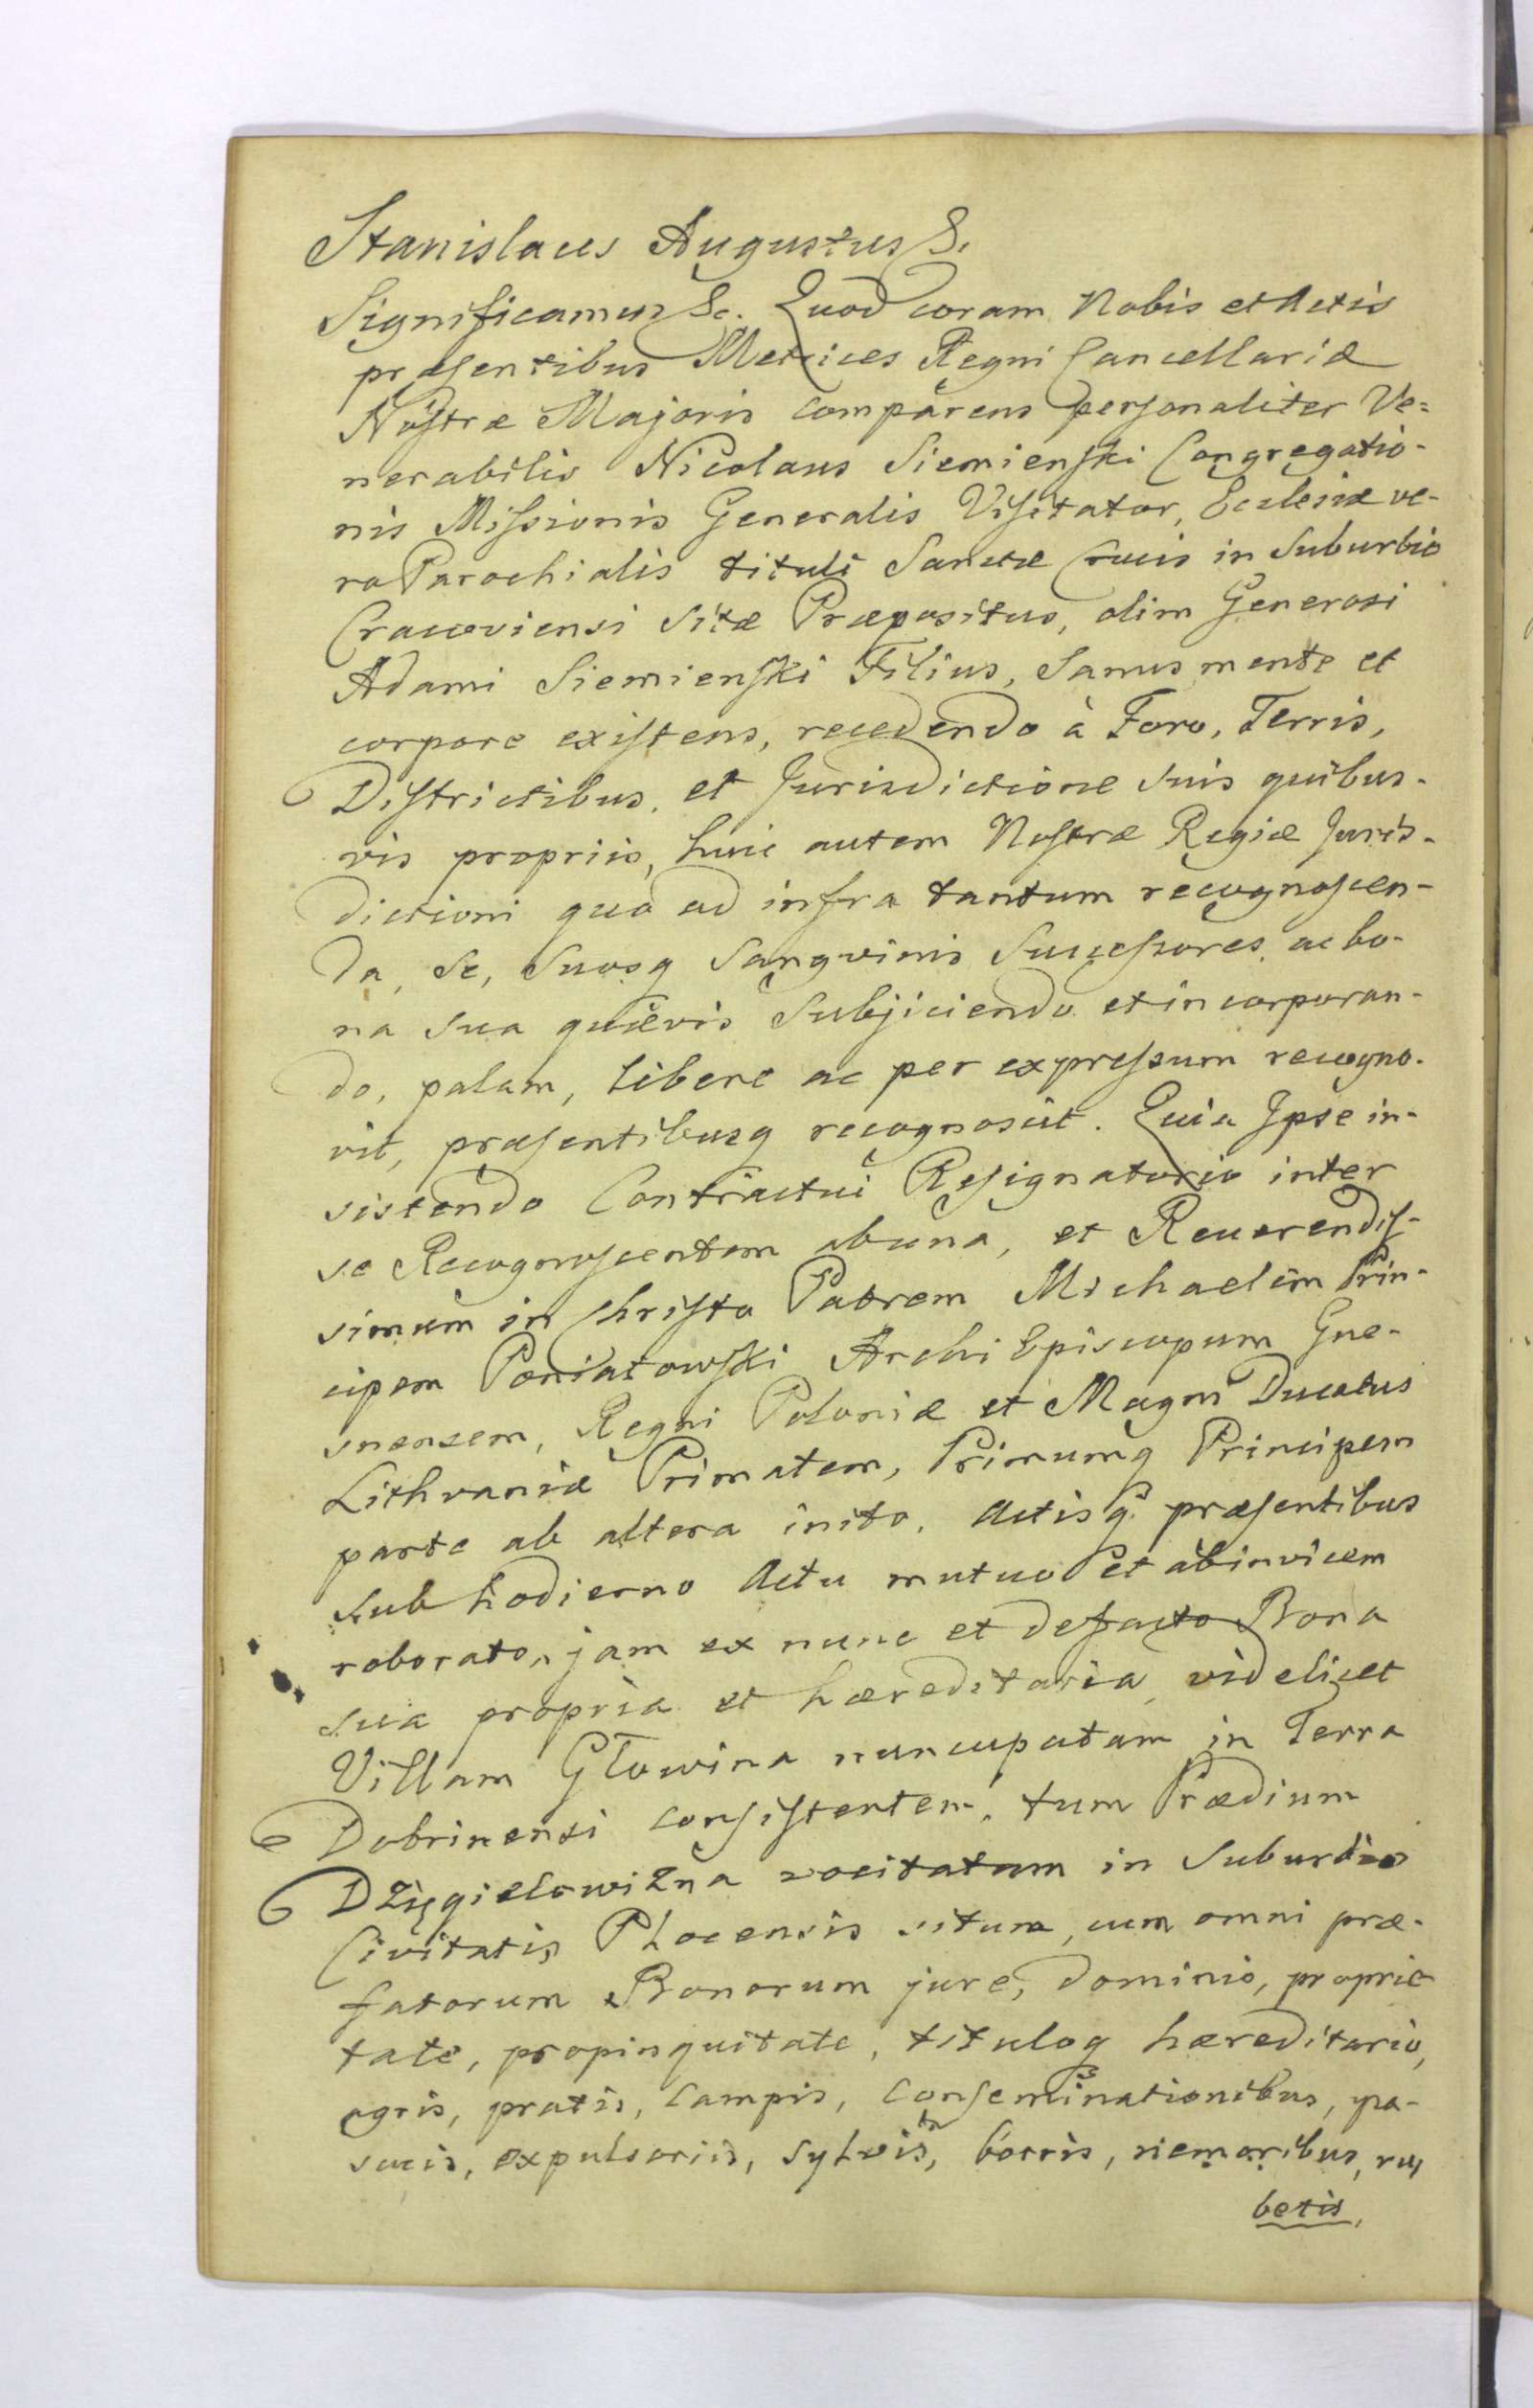 Stanislaus Augustus &.
Significamus &c. Quod coram Nobis et Actis
præsentibus Metrices Regni Cancellariæ
Nostræ Majoris comparens personaliter Ve=
nerabilis Nicolaus Siemienski Congregatio-
nis Missionis Generalis Visitator, Ecclesiæ ve-
ro Parochialis tituli Sanctæ Crucis in Suburbio
Cracoviensi sitæ Præpositus, olim Generosi
Adami Siemienski Filius, Sanus mente et
corpore existens, recedendo à Foro, Terris,
Districtibus, et Jurisdictione suis quibus-
vis propriis, huic autem Nostræ Regiæ Juris-
dictioni quo ad infra tantum recognoscen-
da, se, suosq Sangvinis Successores, ac bo-
na sua quævis subjiciendo et incorporan-
do, palam, libere ac per expressum recogno-
vit, præsentibusq recognoscit. Quia Ipse in-
sistendo Contractui Resignatorio inter
se Recognoscentem ab una, et Reverendis-
simum in Christo Patrem Michaelem Prin-
cipem Poniatowski Archi Episcopum Gne-
snensem, Regni Poloniæ et Magni Ducatus
Lithvaniæ Primatem, Primumq Principem
parte ab altera inito, Actisq præsentibus
sub hodierno Actu mutuo et abinvicem
roborato, jam ex nunc et defacto Bona
sua propria et hæreditaria, videlicet
Villam Głowina nuncupatam in Terra
Dobrinensi consistentem, tum Prædium
Dzięgielowizna vocitatum in Suburbio
Civitatis Plocensis situm, cum omni præ-
fatorum Bonorum jure, dominio, proprie
tate, propinquitate, tituloq hæreditario,
agris, pratis, campis, conseminationibus, pa-
scuis, expulsoriis, sylvis, borris, niemoribus, ru
betis,